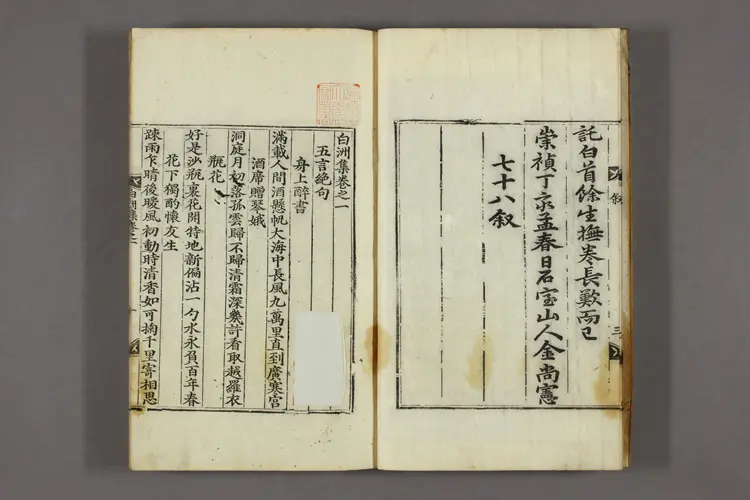 託白首餘生撫卷長歎而已
崇禎丁亥孟春日石室山人金尚憲
七十八叙
叙
三
白洲集卷之一
五言絕句
身上醉書
滿載人間酒懸帆大海中長風九萬里直到廣寒宮
酒席贈琴娥
洞庭月初落孤雲歸不歸清霜深幾許看取越羅衣
瓶花
好是沙瓶裏花開特地新偏沾一勺水永負百年春
花下獨酌懷友生
疎雨乍晴後暖風初動時清香如可掬千里寄相思
白洲集卷之一